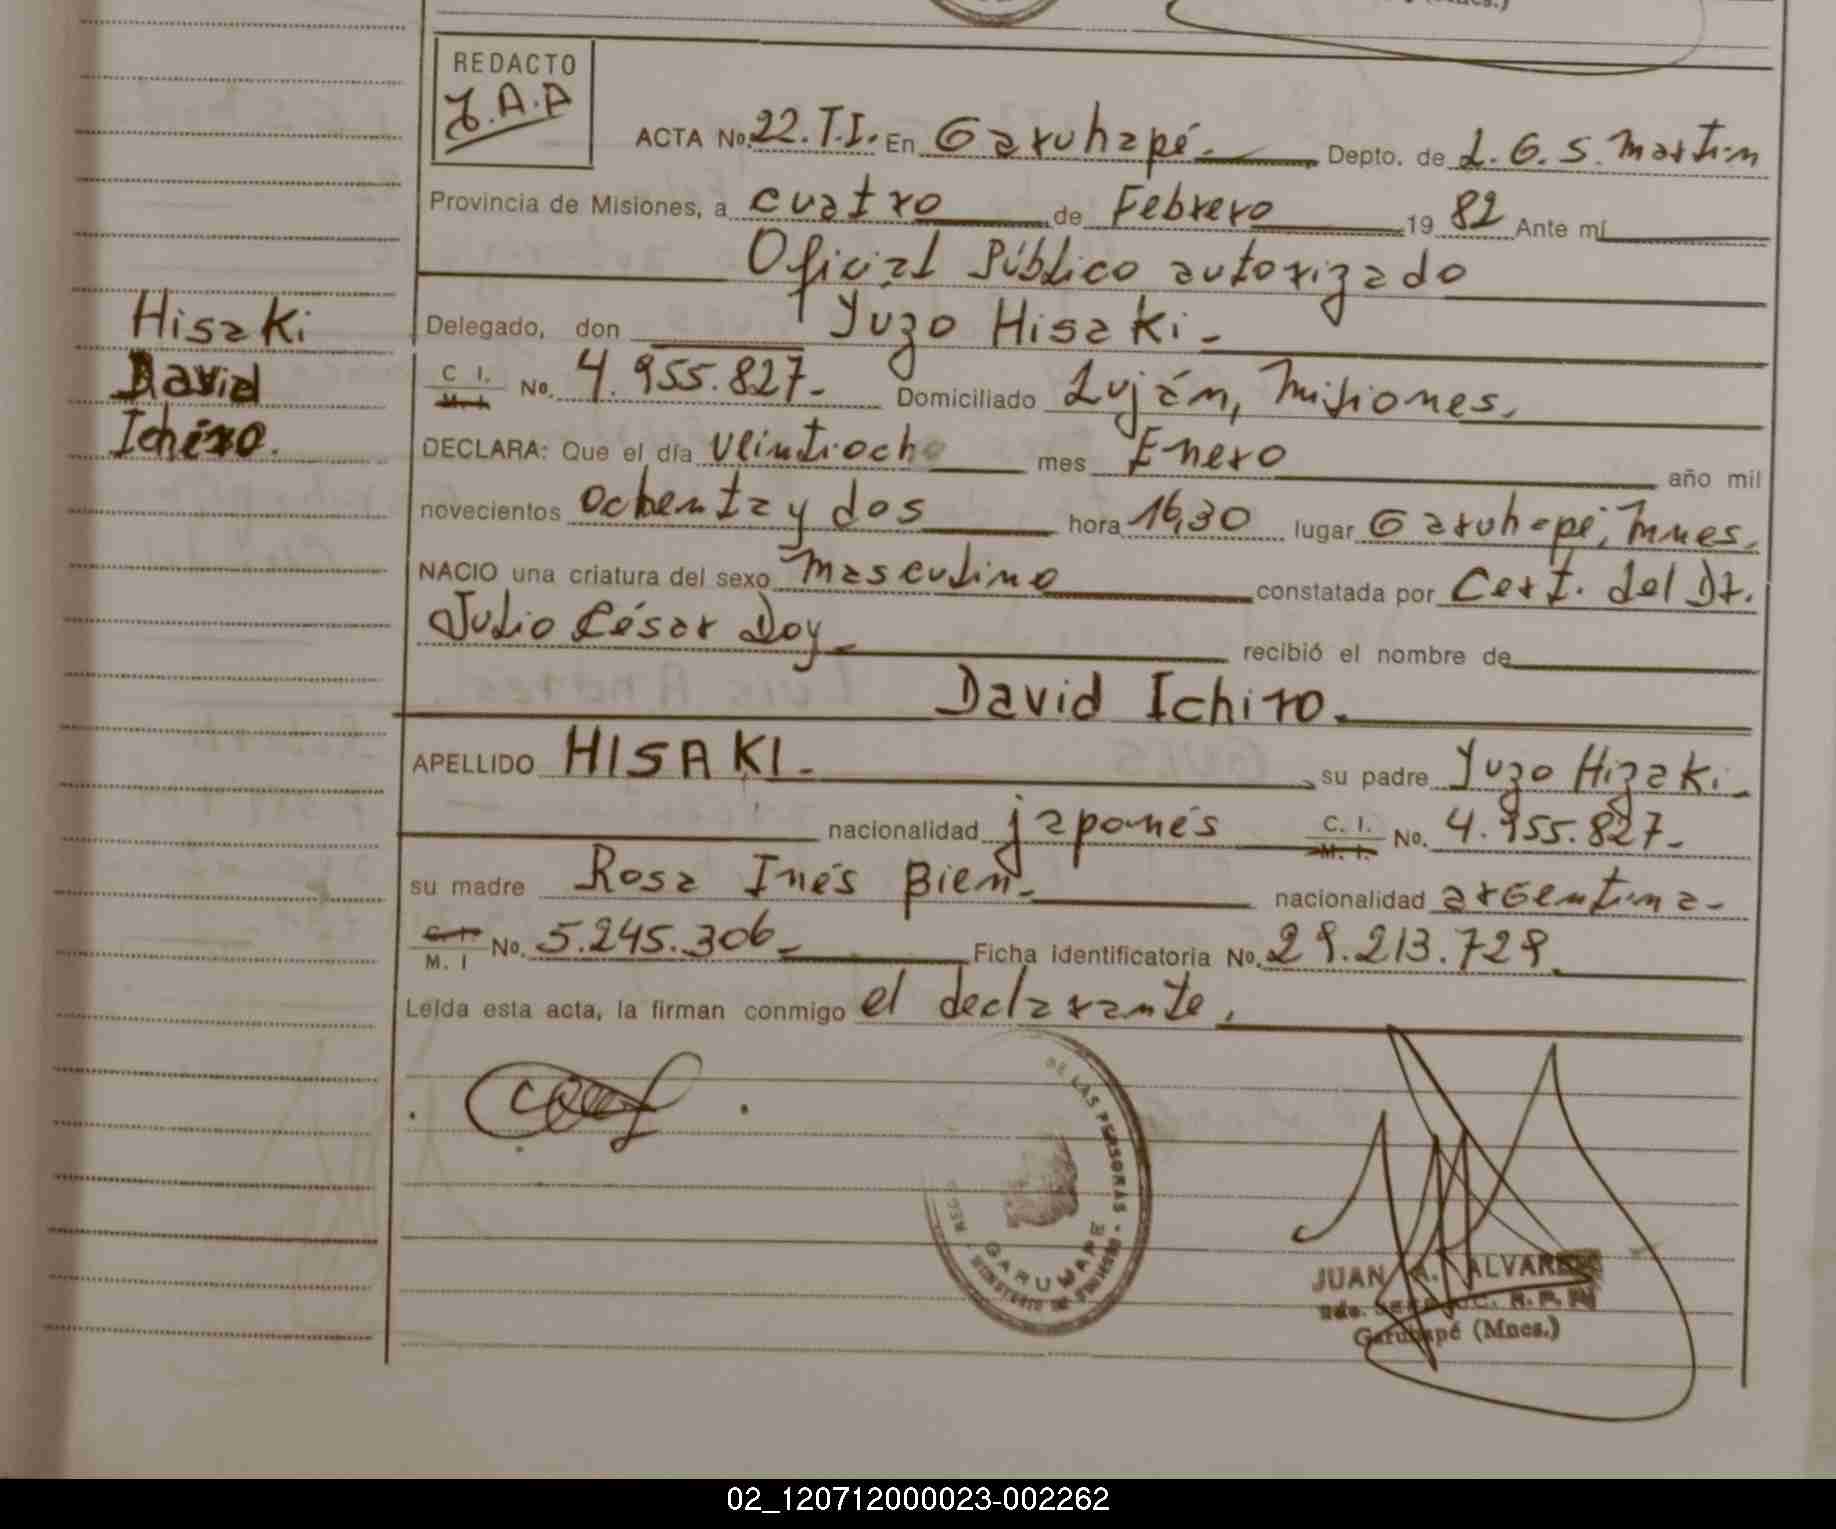 (Mnes.)
REDACTO
J.A.A
ACTA No. 22.T.I. En Garuhapé. Depto. de L. G. S. Martin
Provincia de Misiones, a cuatro de Febrero 19 82 Ante mí
Oficial Público autorizado
Delegado, don Yuzo Hisaki.
C I. M. I. No. 4.955.827- Domiciliado Luján, Misiones.
DECLARA: Que el día veintiocho mes Enero año mil
novecientos ochenta y dos hora 16,30 lugar Garuhapé, Mnes.
NACIO una criatura del sexo masculino constatada por Cert. del Dr.
Julio César Doy recibió el nombre de
David Ichiro.
APELLIDO HISAKI. su padre Yuzo Hizaki.
nacionalidad japonés C. I. M. I. No. 4.955.827-
su madre Rosa Inés Bien. nacionalidad argentina-
C. I. M. I No. 5.245.306- Ficha identificatoria No. 29.213.729.
Leída esta acta, la firman conmigo el declarante.
Hisaki
David
Ichiro.
DE LAS PERSONAS
GARUHAPE
JUAN A. ALVAREZ
Garuhapé (Mnes.)
02_120712000023-002262